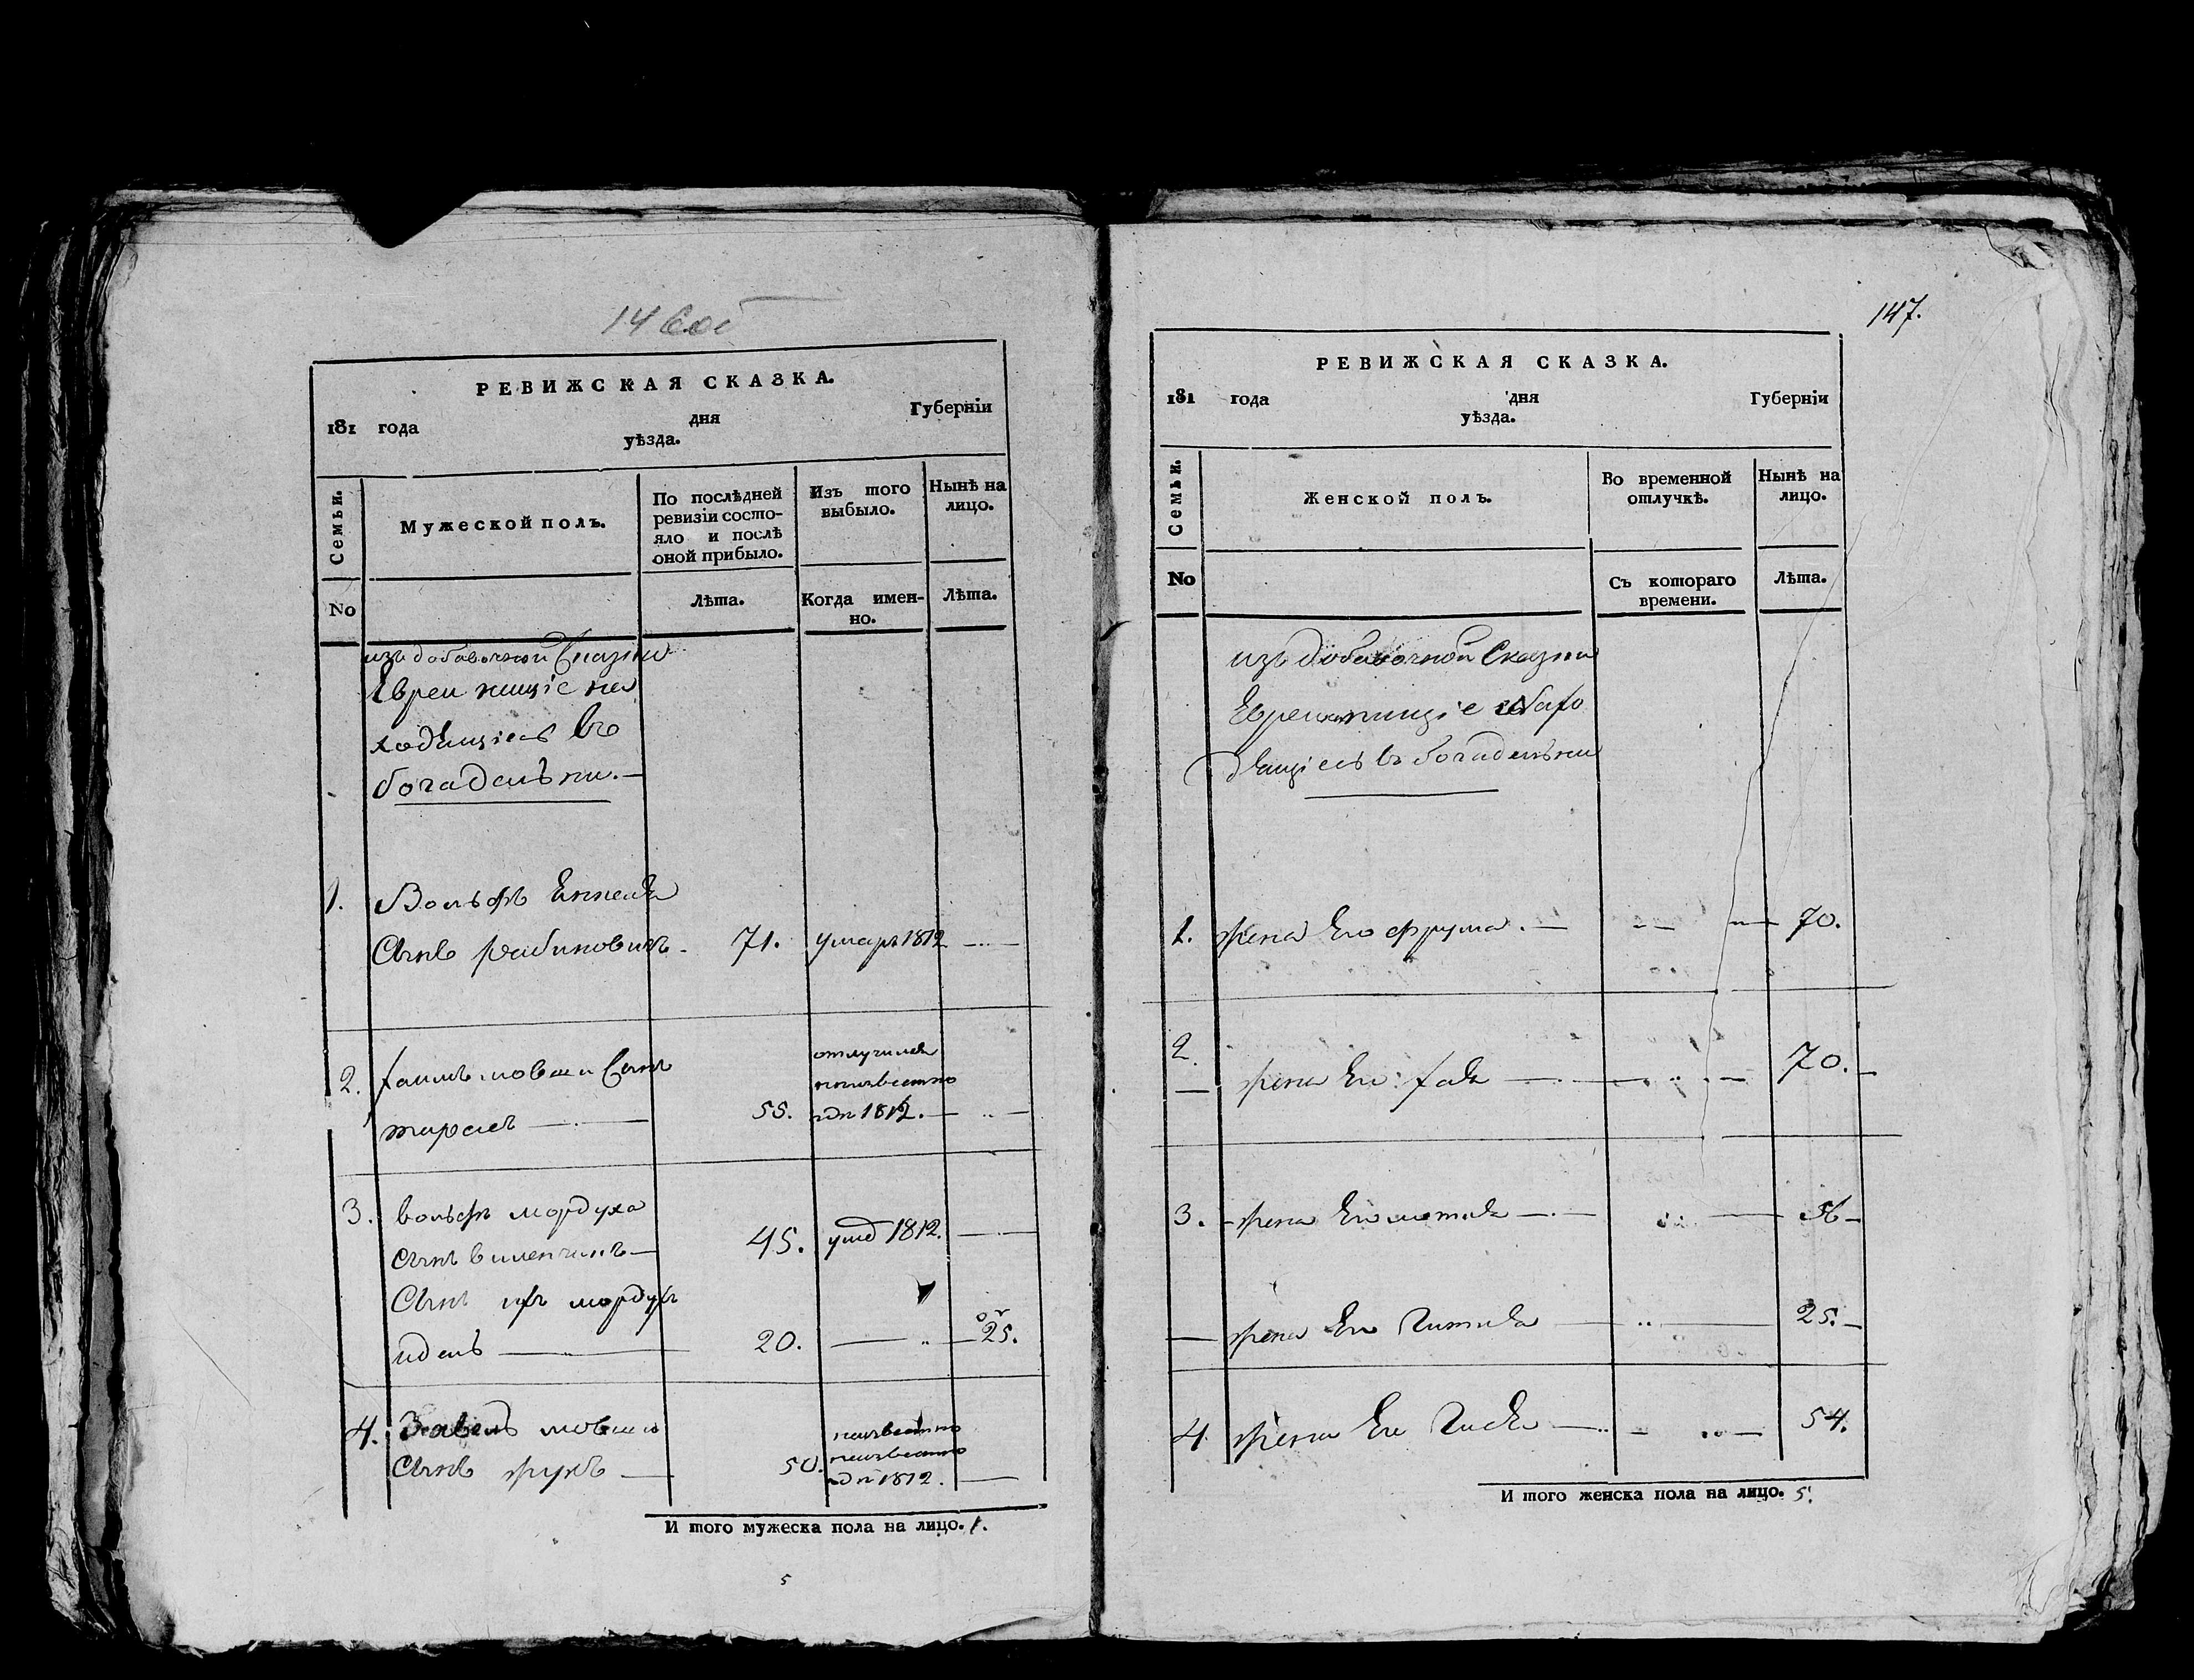 РЕВИЖСКАЯ СКАЗКА.
181 года дня Губерніи
уѣзда.
Семьи.
Мужеской полъ.
По послѣдней
ревизіи состо-
яло и послѣ
оной прибыло.
Изъ того
выбыло.
Нынѣ на
лицо.
No
Лѣта.
Когда имен-
но.
Лѣта.
изъ добавочной Сказки
Евреи нищіе на
ходящіесь въ
богадельни.—
1. Вольфъ Еннеля
Сынъ рабиновичъ 71. умеръ 1812
отлучился
2. Хаимъ мовши Сынъ неизвестно
55. 1812.
3. вольфъ мордуха
сынъ виленчикъ 45. 1812.
Сынъ мордухъ
идель 20. 25.
4. мовши неизвестно
Сынъ жукъ 50. неизвестно
1812.
И того мужеска пола на лицо. 1.
5
147.
РЕВИЖСКАЯ СКАЗКА.
181 года дня Губерніи
уѣзда.
Семьи.
Женской полъ.
Во временной
отлучкѣ.
Нынѣ на
лицо.
No
Съ котораго
времени.
Лѣта.
изъ добавочной Сказки
Евреи нищіе нахо
дящіесь въ богадельни
1. жена Его фрума. 70.
2. жена Его Хая 70.
3. жена Его 56
жена Его Гитля 25.
4 жена Его 54.
И того женска пола на лицо. 5.